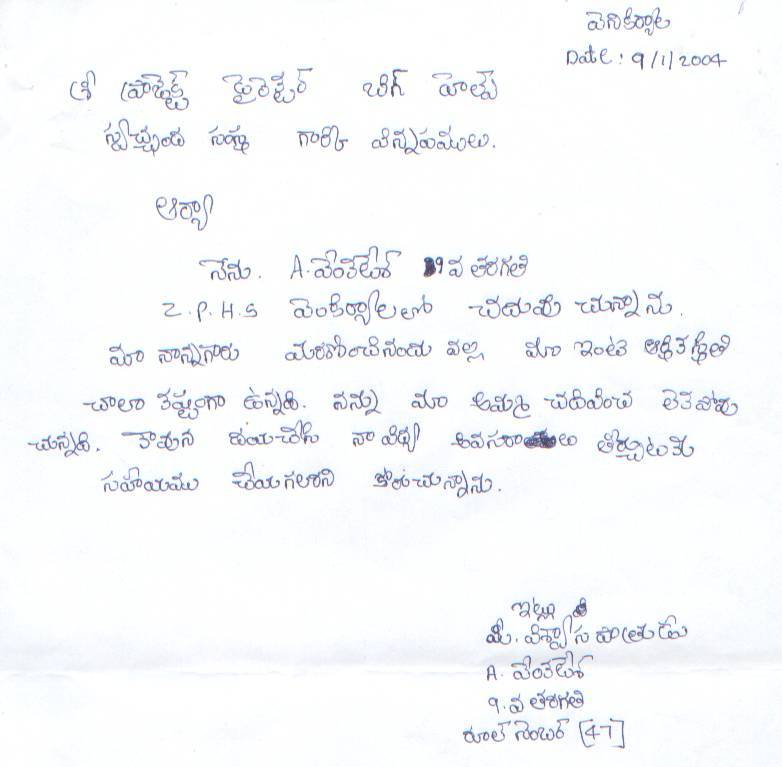 వెనికిర్యాల
Date: 9/1/2004
శ్రీ ప్రాజెక్ట్ డైరెక్టర్ బిగ్ హెల్ప్
స్వచ్ఛంద సంస్థ గారికి విన్నపములు.
ఆర్యా
నేను. A. వెంకటేశ్ 9వ తరగతి
Z.P.H.S వెంకిర్యాలలో చదువు చున్నాను.
మా నాన్నగారు మరణించినందు వల్ల మా ఇంటి ఆర్థిక స్థితి
చాలా కష్టంగా ఉన్నది. నన్ను మా అమ్మ చదివించ లేకపోవు
చున్నది. కావున దయచేసి నా విద్య అవసరాలు తీర్చుటకు
సహాయము చేయగలరని కోరుచున్నాను.
ఇట్లు
మీ. విశ్వాస పాత్రుడు
A. వెంకటేశ్
9. వ తరగతి
రూల్ నెంబర్ [47]